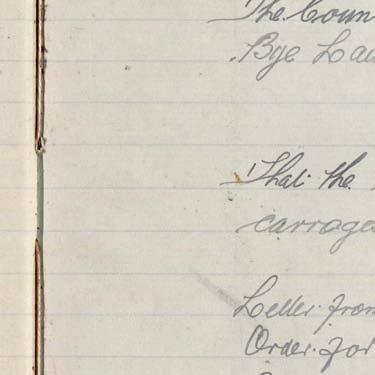 The Coun
Bye Law
That the
carrage
Letter from
Order for